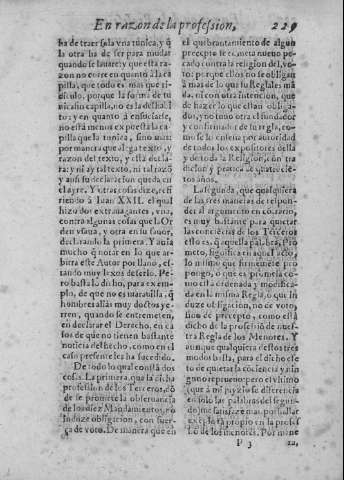 En razon de la profession, 229
ha de traer sola vna tunica, y q̃
la otra ha de ser para mudar
quando se lauare; y que esta ra
zon no corre en quanto à la ca
pilla, que todo es mas que ri-
diculo. porque la forma de tu
nica sin capilla, no es la de
to; y en quanto à ensuciarse,
no està menos expuesta la ca
pilla que la tunica, sino mas:
por manera que alga texto, y
razon del texto, y està decla-
ra: y ni ay tal texto, ni tal razõ
y assi su declaracion queda en
el ayre. Y otras cosas dize, refi
riendo à Iuan XXII. el qual
hizo dos extrauagantes, vna,
contra algunas cosas que la Or
den vsaua, y otra en su fauor,
declarando la primera. Y auia
mucho q̃ notar en lo que ar-
bitra este Autor por llano, es-
tando muy lexos de serlo. Pe-
ro basta lo dicho, para exem-
plo, de que no es marauilla, q̃
hombres aliàs muy doctos ye-
rren, quando se entremeten,
en declarar el Derecho, en ca
sos de que no tienen bastante
noticia del hecho, como en el
caso presente les ha sucedido.
De todo lo qual constã dos
cosas. La primera que la dicha
profession de los Terceros, dõ
de se promete la obseruancia
de los diez Mandamientos, no
induze obligacion, con fuer-
ça de voto. De manera que en
el quebrantamiento de algun
precepto se cometa nueuo pe-
cado contra la religion del, vo
to: porque ellos no se obligan
à mas de lo que su Regla les mã
da, ni con otra intencion, que
de hazer lo que ellos obli-
gados, y no tuuo otra el fundador
y confirmador de su regla, co-
mo se la colegia por autoridad de
todos los expositores della
y de toda la Religion, con tra
 y practica de quatrocie-
tos años.
La segunda, que qualquiera
de las tres maneras de respon-
der al argumento en cõtrario,
es muy bastante para quietar
las conciẽcias de los Terceros
esto es, q̃ aquella palabra, Pro
meto, significa en aquel acto,
lo mismo que firmemẽte pro
pongo, ò que es promessa co-
mo està ordenada y modifica-
da en la misma Regla, ò que in
duze obligacion, no de voto,
sino de precepto, como està
dicho de la professiõ de nues-
tra Regla de los Menores. Y
aunque qualquiera destos tres
modos basta, para el dicho efe
to de quietar la cõciencia y nin
guno reprueuo: pero el vltimo
(que à mi juyzio se diferencia
en solo las palabras del segun-
do) me satisfaze mas, por hallar
expressa propria en la profes
siõ de los menores. Por mane
P 3 ra,